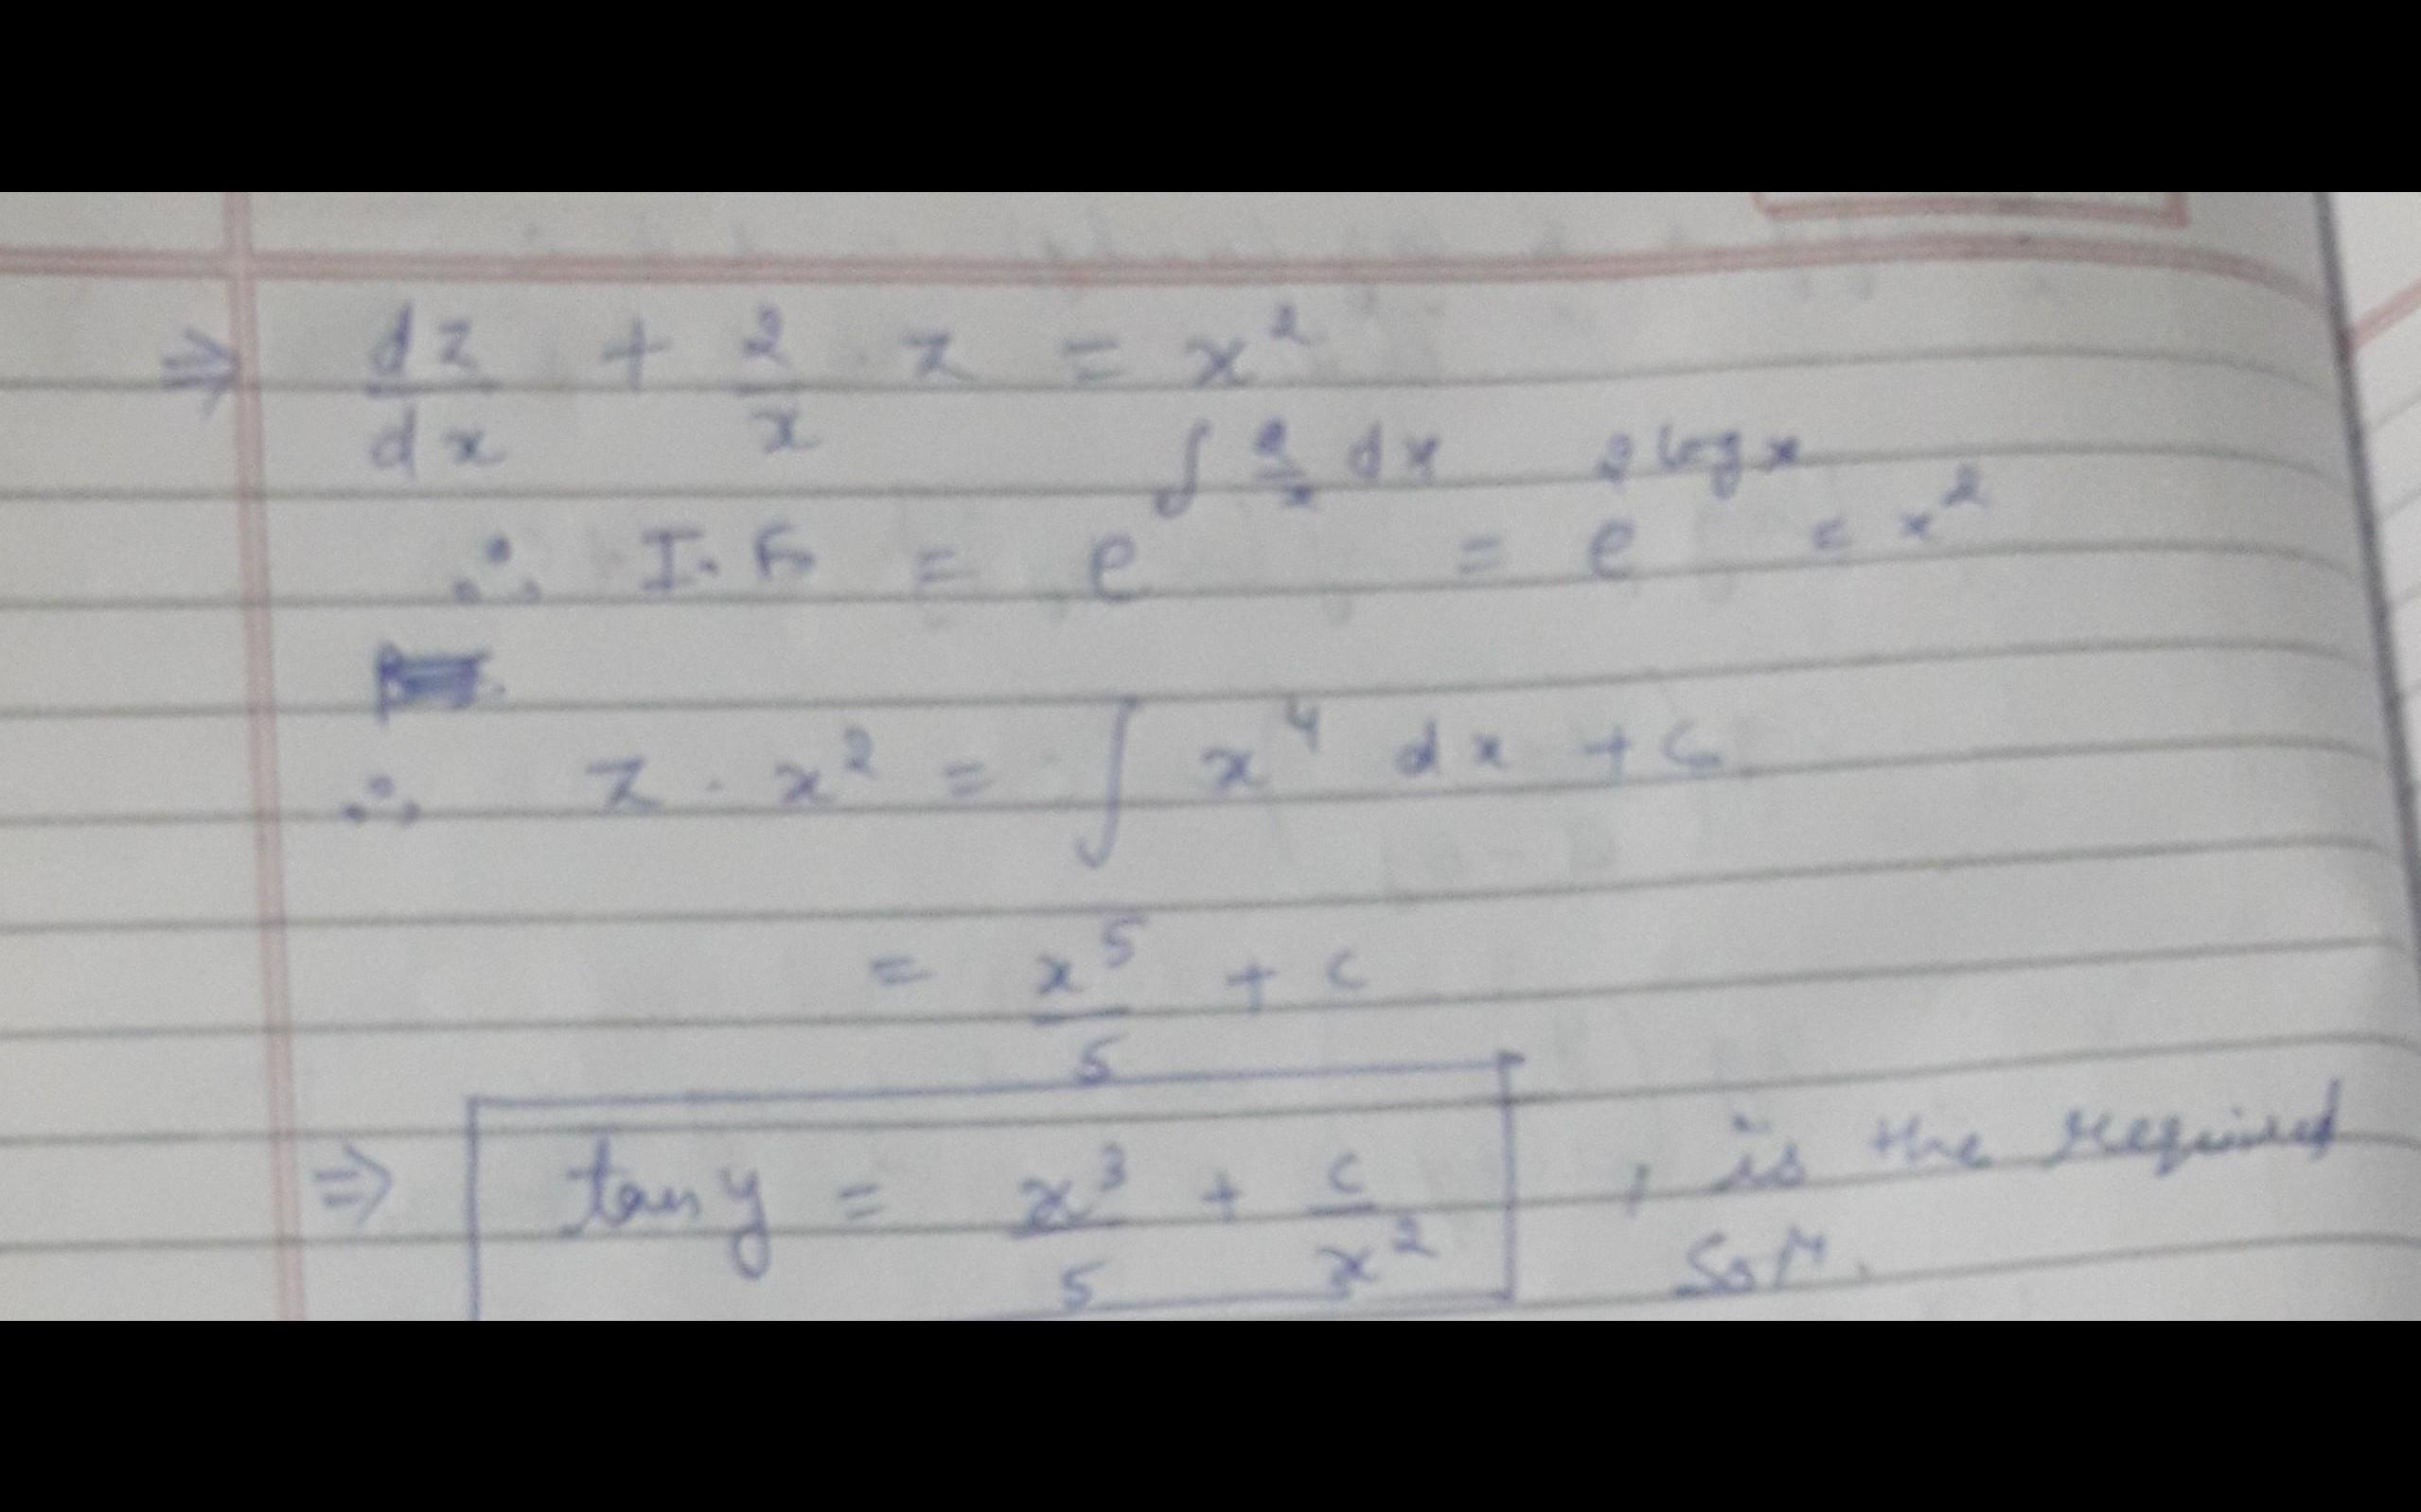 ⇒ dz/dx + 2/x · z = x²
∴ I.F. = e^∫ 2/x dx = e^2 log x = x²
∴ z · x² = ∫ x⁴ dx + C
= x⁵/5 + c
⇒ tan y = x³/5 + c/x² , is the required
Soln.